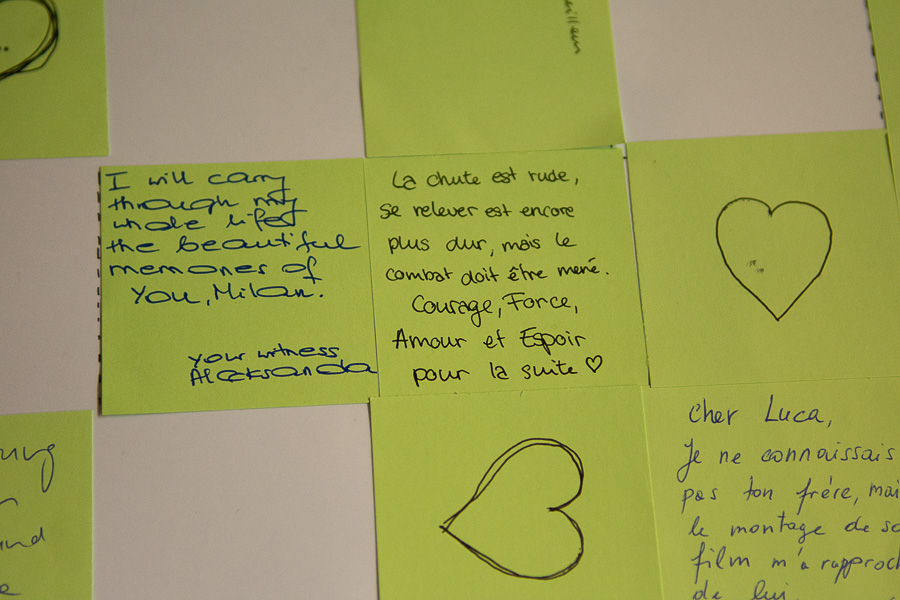 I will carry
through my
whole lifes
the beautiful
memories of
you, Milan.
your witness
Aleksandra
La chute est rude,
se relever est encore
plus dur, mais le
combat doit être mené.
Courage, Force,
Amour et Espoir
pour la suite ♡
Cher Luca,
Je ne connaissais
pas ton frére, mai
le montage de so
film m'a rapproch
de lui.